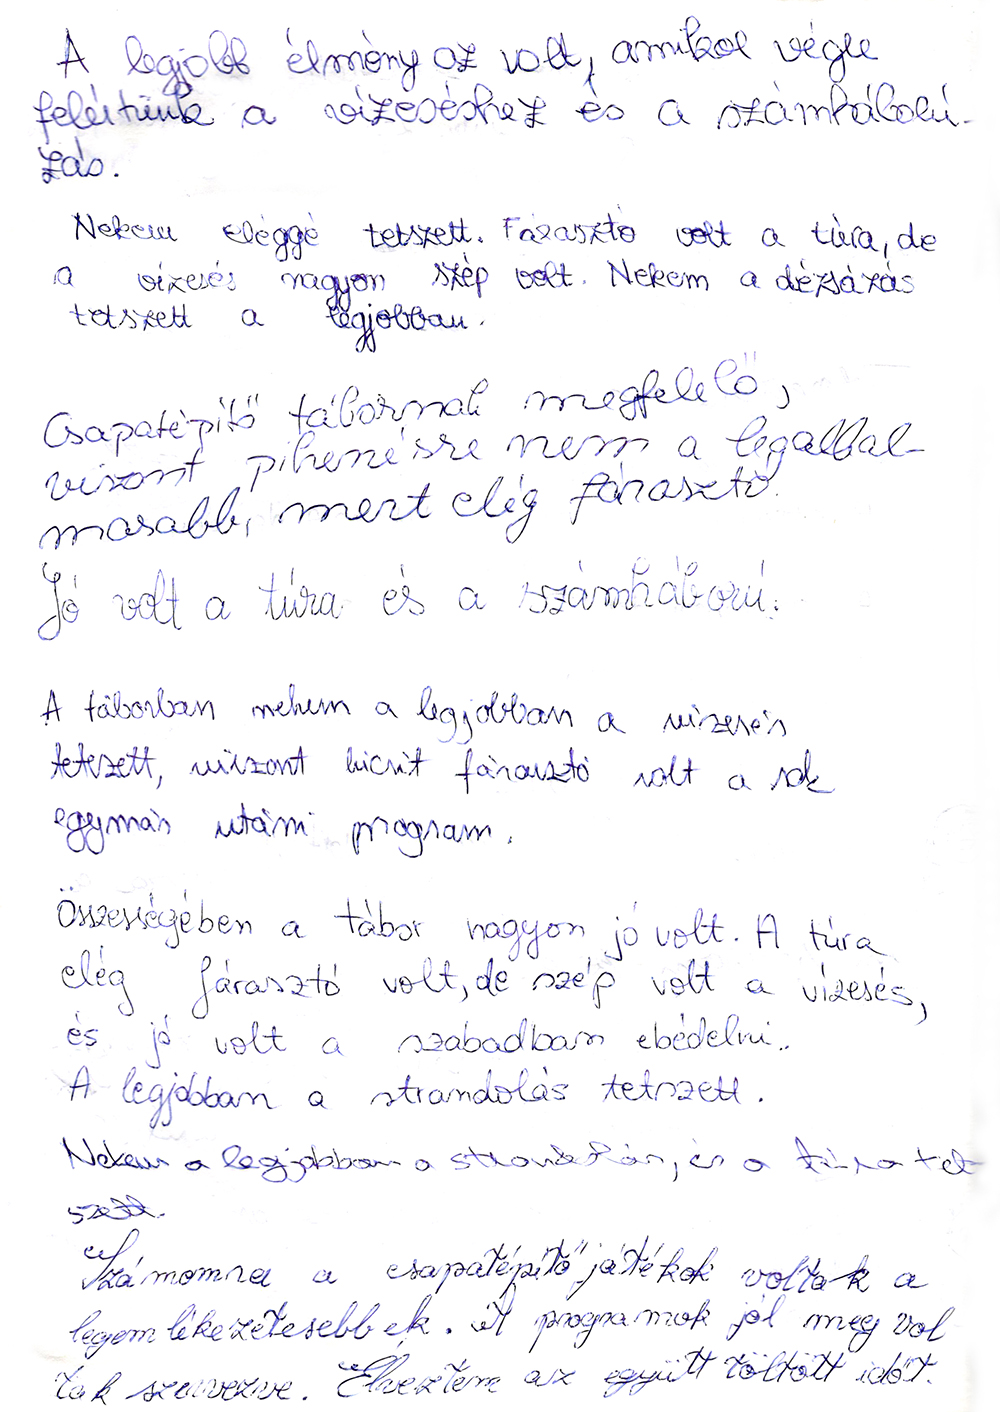 A legjobb élmény az volt, amikor végre
felértünk a vízeséshez és a számháború-
zás.
Nekem eléggé tetszett. Fárasztó volt a túra, de
a vízesés nagyon szép volt. Nekem a dézsázás
tetszett a legjobban.
Csapatépítő tábornak megfelelő,
viszont pihenésre nem a legalkal-
masabb, mert elég fárasztó.
Jó volt a túra és a számháború.
A táborban nekem a legjobban a vízesés
tetszett, viszont kicsit fárasztó volt a sok
egymás utáni program.
Összességében a tábor nagyon jó volt. A túra
elég fárasztó volt, de szép volt a vízesés,
és jó volt a szabadban ebédelni.
A legjobban a strandolás tetszett.
Nekem a legjobban a strandolás, és a túra tet
szett.
Számomra a csapatépítő játékok voltak a
legemlékezetesebbek. A programok jól meg vol
tak szervezve. Élveztem az együtt töltött időt.